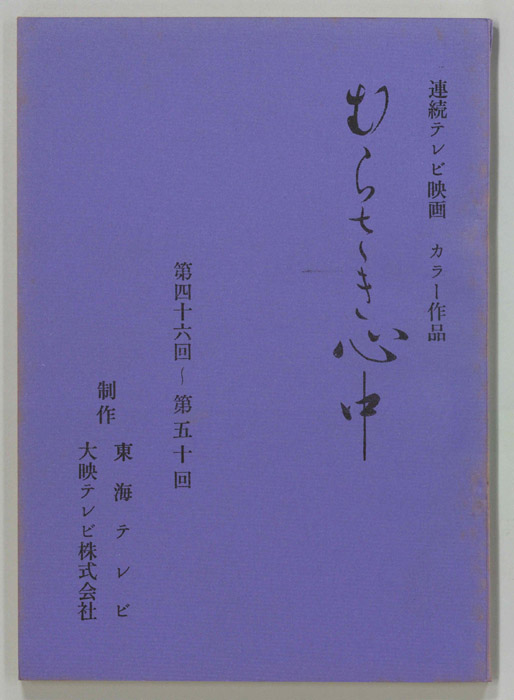 連続テレビ映画 カラー作品
むらさき心中
第四十六回〜第五十回
制作
東海テレビ
大映テレビ株式会社